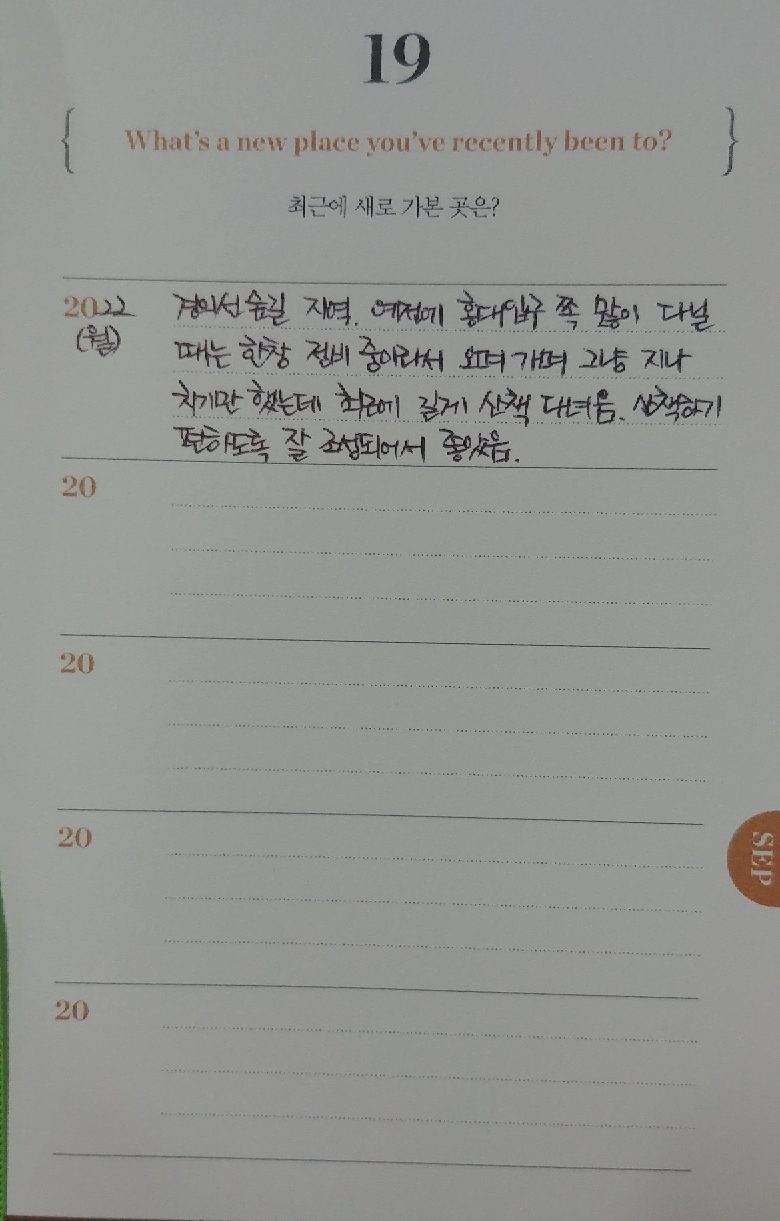 19
What's a new place you've recently been to?
최근에 새로 가본 곳은?
2022 경의선 숲길 지역. 예전에 홍대입구 쪽 많이 다닐
(월) 때는 한창 정비 중이라서 오며 가며 그냥 지나
치기만 했는데 최근에 길게 산책 다녀옴. 산책하기
편하도록 잘 조성되어서 좋았음.
20
20
20
SEP
20